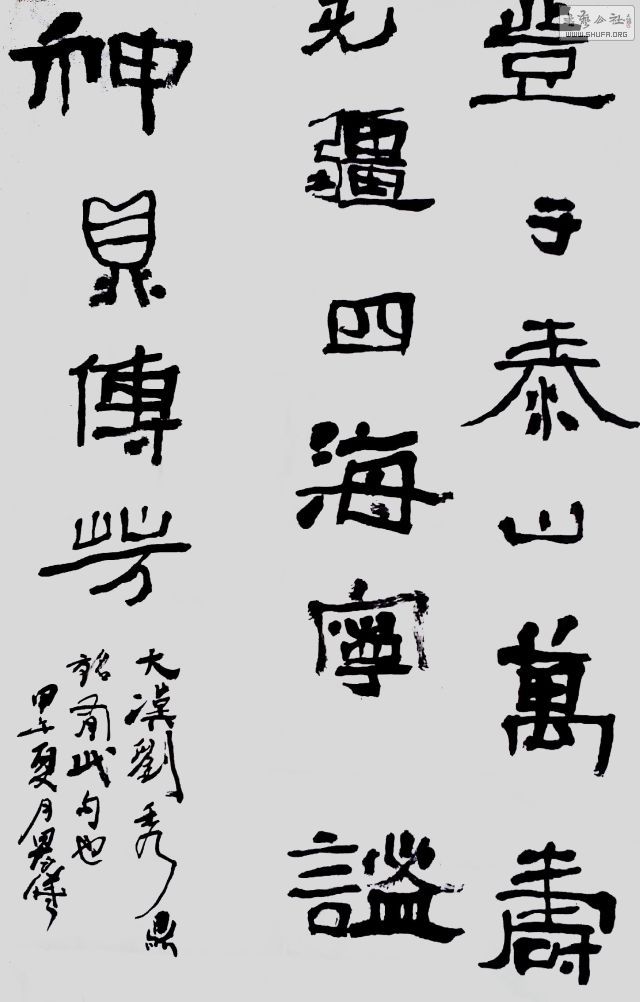 登于泰山萬壽
无疆四海寧謐
神鼎傳芳
大漢劉秀鼎
銘有此句也
甲午夏月
書藝公社
WWW.SHUFA.ORG